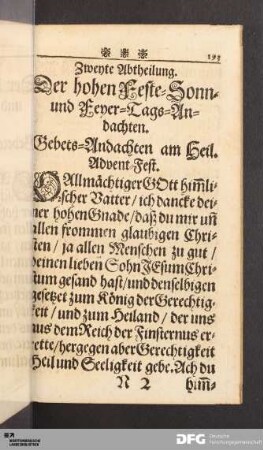 ❋ ❋ ❋ 195
Zweyte Abtheilung.
Der hohen Feste-Sonn-
und Feyer-Tags-An-
dachten.
Gebets-Andachten am Heil.
Advent-Fest.
O Allmächtiger GOtt him̅li-
scher Vatter / ich dancke dei-
ner hohen Gnade / daß du mir uñ
allen frommen glaubigen Chri-
sten / ja allen Menschen zu gut /
deinen lieben Sohn JEsum Chri-
stum gesand hast / und denselbigen
gesetzet zum König der Gerechtig-
keit / und zum Heiland / der uns
aus dem Reich der Finsternus er-
rette / hergegen aber Gerechtigkeit
Heil und Seeligkeit gebe. Ach du
N 2 him̅-
DFG Deutsche
Forschungsgemeinschaft